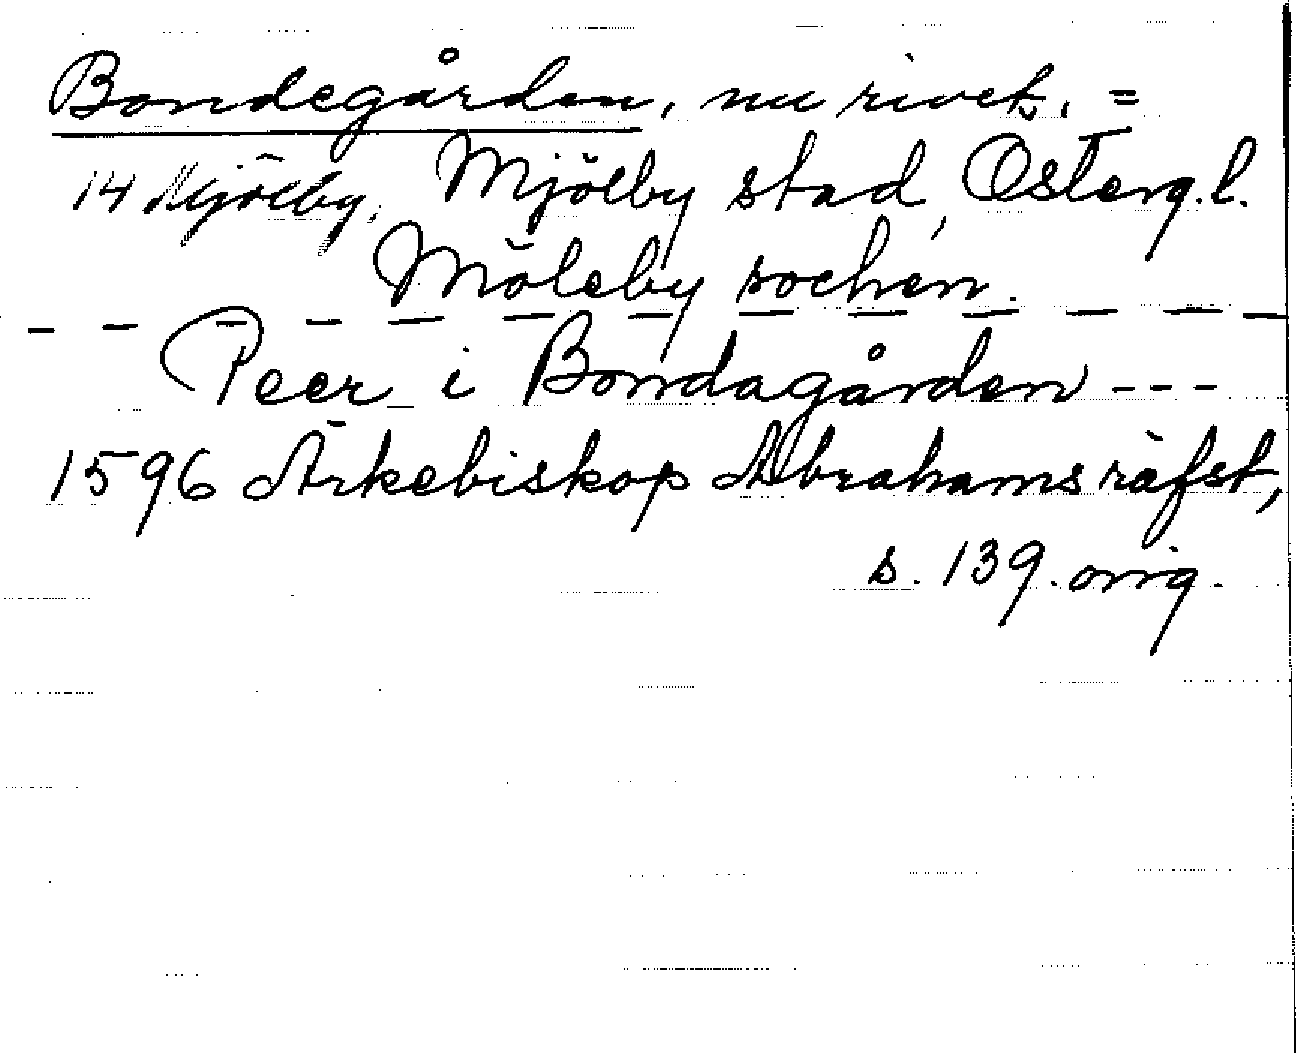 Bondegården, nu rivet. =
14 Mjölby. Mjölby stad, Österg. l.
Möleby sochen.
Peer i Bondagården ---
1596 Ärkebiskop Abrahams räfst,
s. 139. orig.